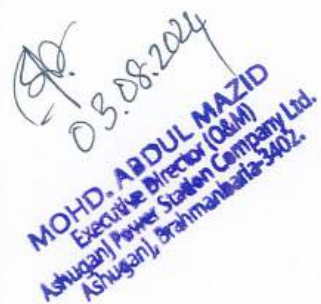 03.08.2024
MOHD. ABDUL MAZID
Executive Director (O&M)
Ashuganj Power Station Company Ltd.
Ashuganj, Brahmanbaria-3402.